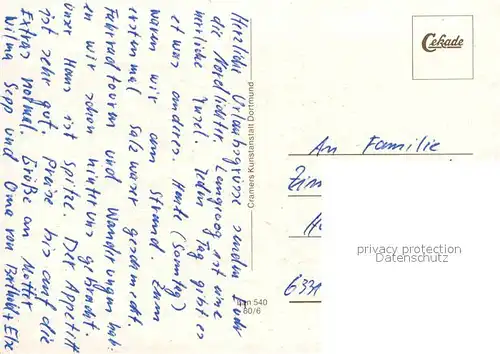 Herzliche Urlaubsgrüsse senden Euch
die Nordlichter. Langeoog ist eine
herrliche Insel. Jeden Tag gibt es
etwas anderes. Heute (Sonntag)
waren wir am Strand. Zum
erstenmal Salzwasser geschmeckt.
Fahrradtouren und Wanderungen hab
en wir schon hinter uns gebracht.
Unser Haus ist Spitze. Der Appetit
ist sehr gut. Preise bis auf die
Extras normal. Grüße an Mutter
Wilma Sepp und Oma von Berthold + Else
Cramers Kunstanstalt Dortmund
540
60/6
Cekade
An Familie
Zim
633
privacy protection
www.ansichtskartenversand.com